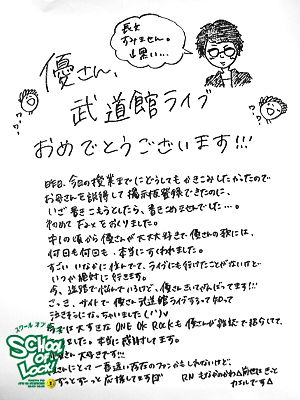 長文
すみません。
優さん、
武道館ライブ
おめでとうございます!!!
昨日、今日の授業までにどうしてもかきこみしたかったので
お母さんを説得して掲示板登録できたのに、
いざ書きこもうとしたら、書きこめませんでした…。
初めてFaxをおくります。
中1の頃から優さんが大大大好きで優さんの歌には、
何回も何回も、本当にすくわれました。
すごいいなかに住んでて、ライブにも行けたことがないけど
いつか絶対に行きます。
今、進路で悩んでいるけど、優さん
さっき、サイトで優さん武道館ライブするって知って
泣きそうになっちゃいました
大すきなONE OK ROCKも優さんが
本当に感謝してます。
さん大好きです!!!
一番遠い存在のファンかもしれないけど、
ずっとずーっと応援してます
RN
カエルです
スクール オブ
SCHOOL
OF
LOCK!